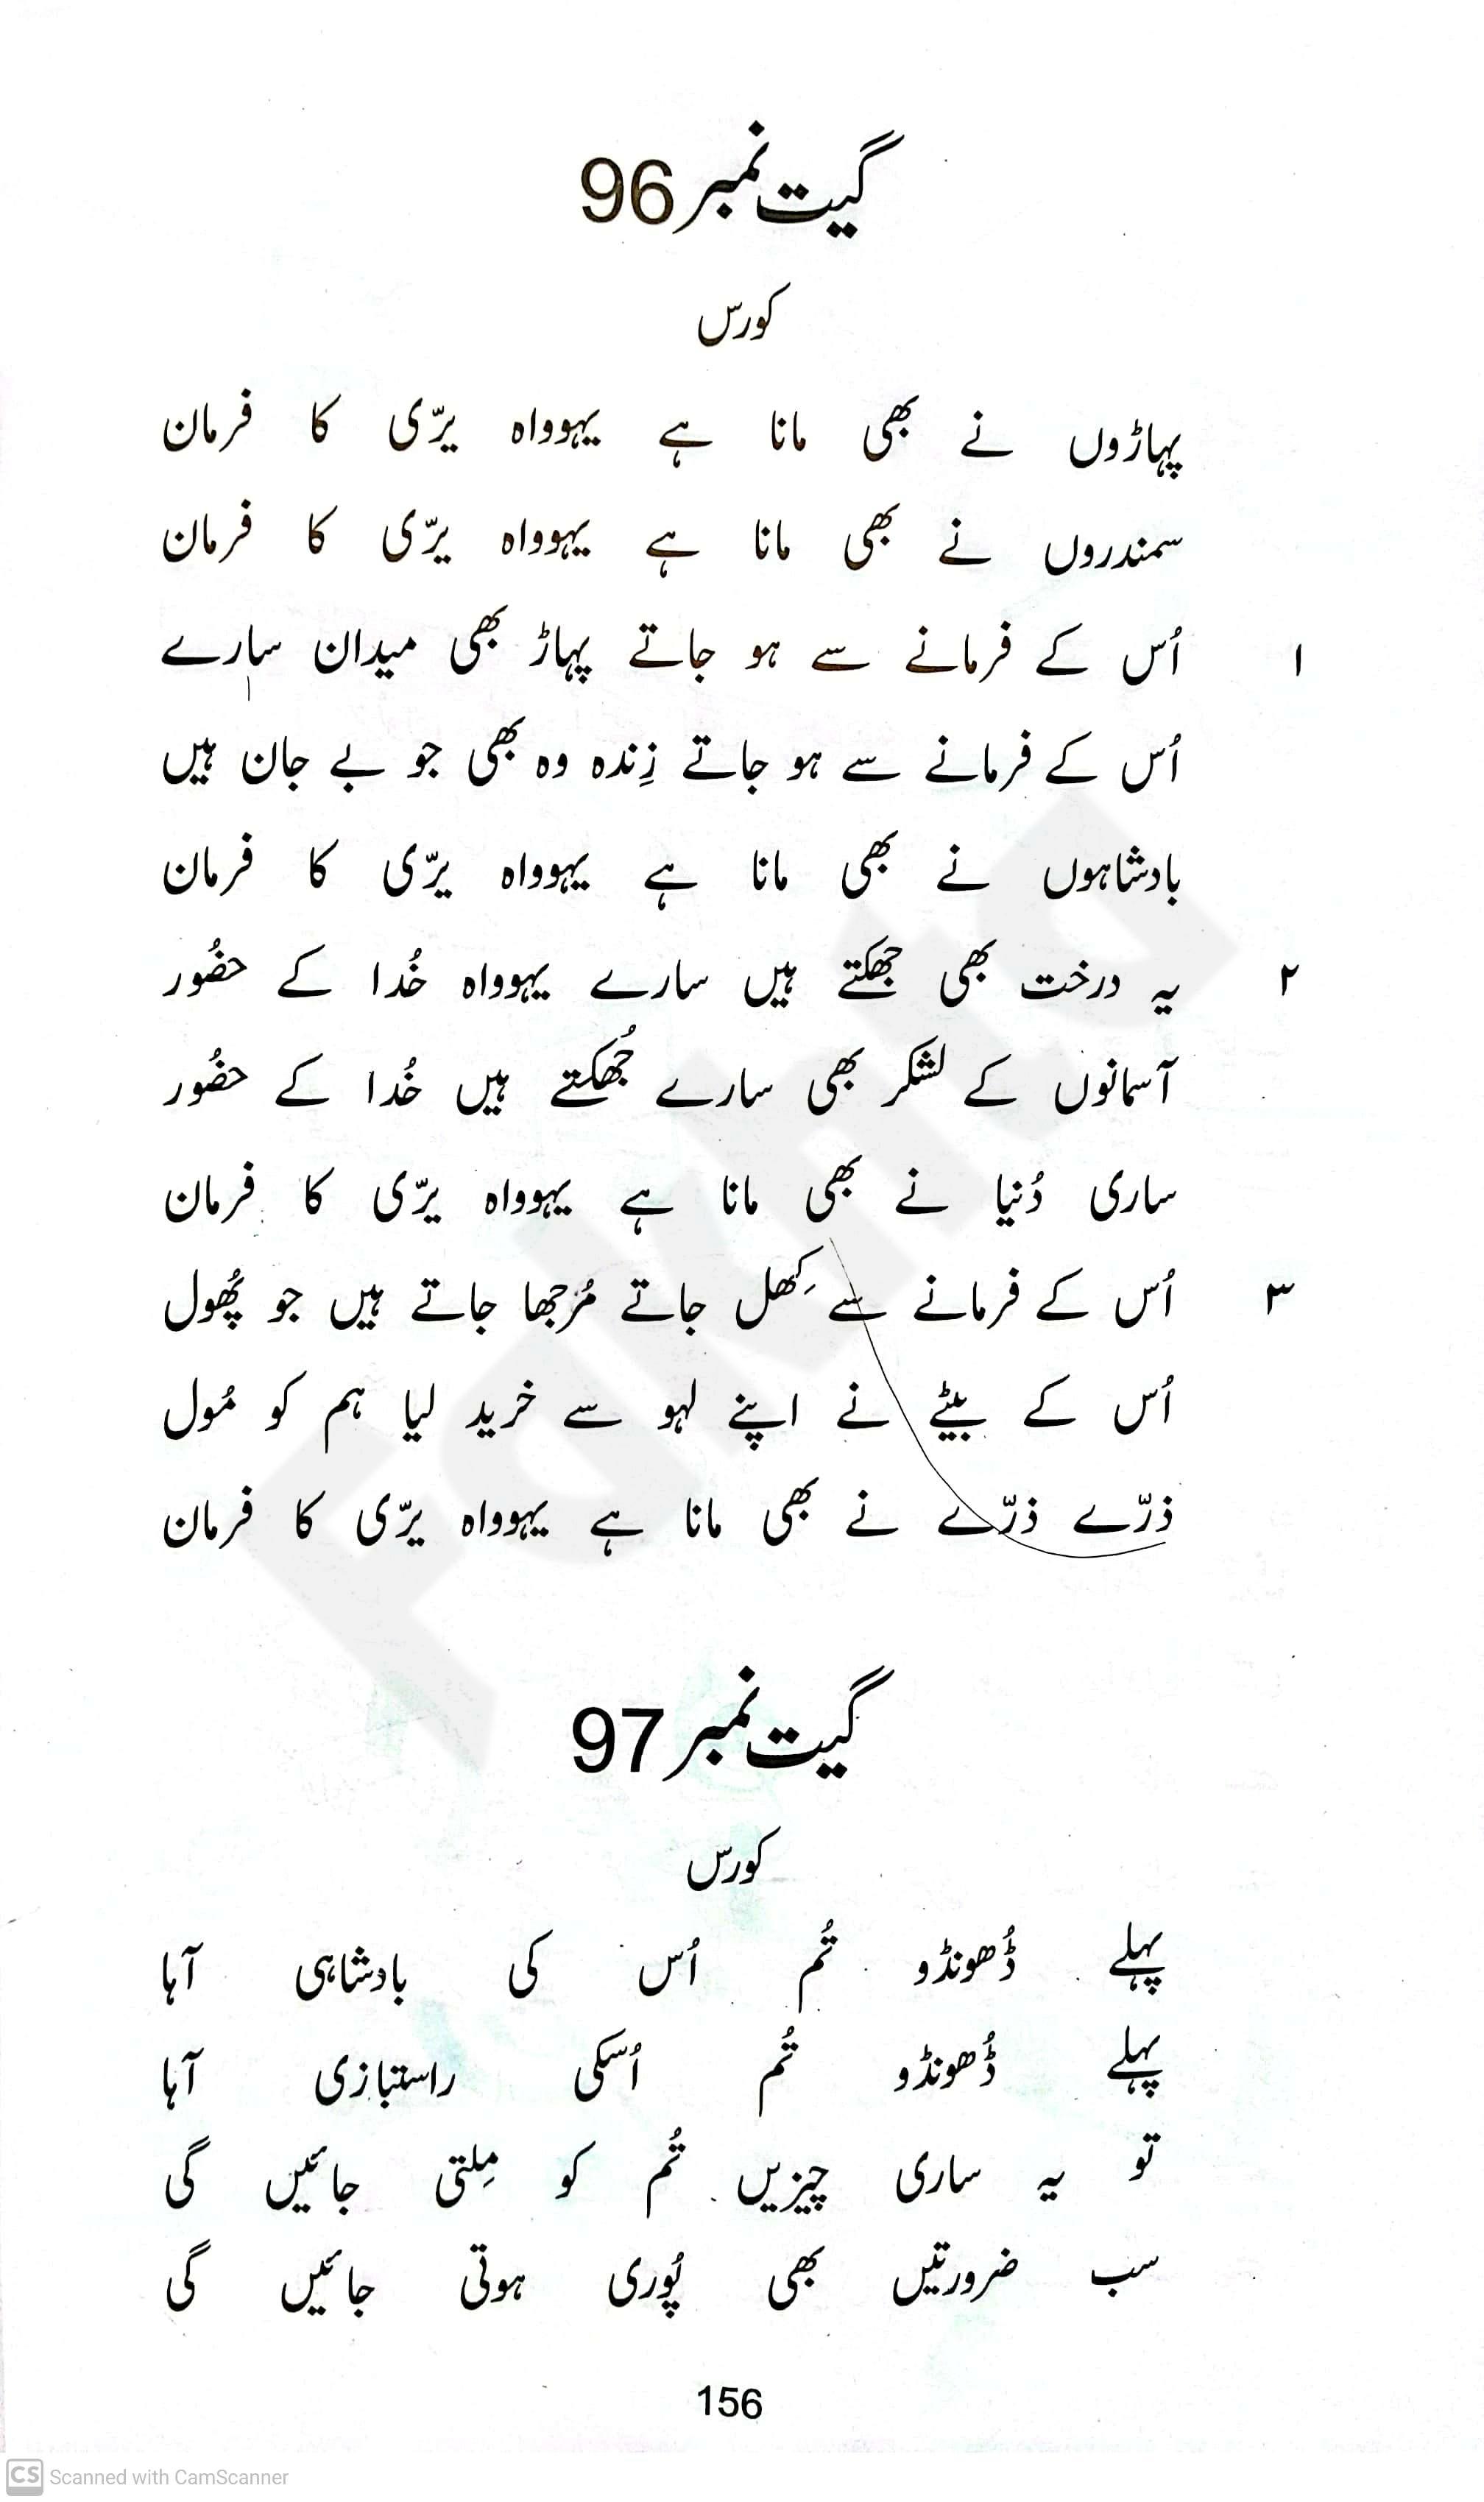 گیت نمبر 96
کورس
پہاڑوں نے بھی مانا ہے یہوواہ یرّی کا فرمان
سمندروں نے بھی مانا ہے یہوواہ یرّی کا فرمان
۱ اُس کے فرمانے سے ہو جاتے پہاڑ بھی میدان سارے
اُس کے فرمانے سے ہو جاتے زِندہ وہ بھی جو بے جان ہیں
بادشاہوں نے بھی مانا ہے یہوواہ یرّی کا فرمان
۲ یہ درخت بھی جھکتے ہیں سارے یہوواہ خُدا کے حضُور
آسمانوں کے لشکر بھی سارے جُھکتے ہیں خُدا کے حضُور
ساری دُنیا نے بھی مانا ہے یہوواہ یرّی کا فرمان
۳ اُس کے فرمانے سے کِھل جاتے مُرجھا جاتے ہیں جو پُھول
اُس کے بیٹے نے اپنے لہو سے خرید لیا ہم کو مُول
ذرّے ذرّے نے بھی مانا ہے یہوواہ یرّی کا فرمان
Fakhta
گیت نمبر 97
کورس
پہلے ڈُھونڈو تُم اُس کی بادشاہی آہا
پہلے ڈُھونڈو تُم اُسکی راستبازی آہا
تو یہ ساری چیزیں تُم کو مِلتی جائیں گی
سب ضرورتیں بھی پُوری ہوتی جائیں گی
156
CS Scanned with CamScanner